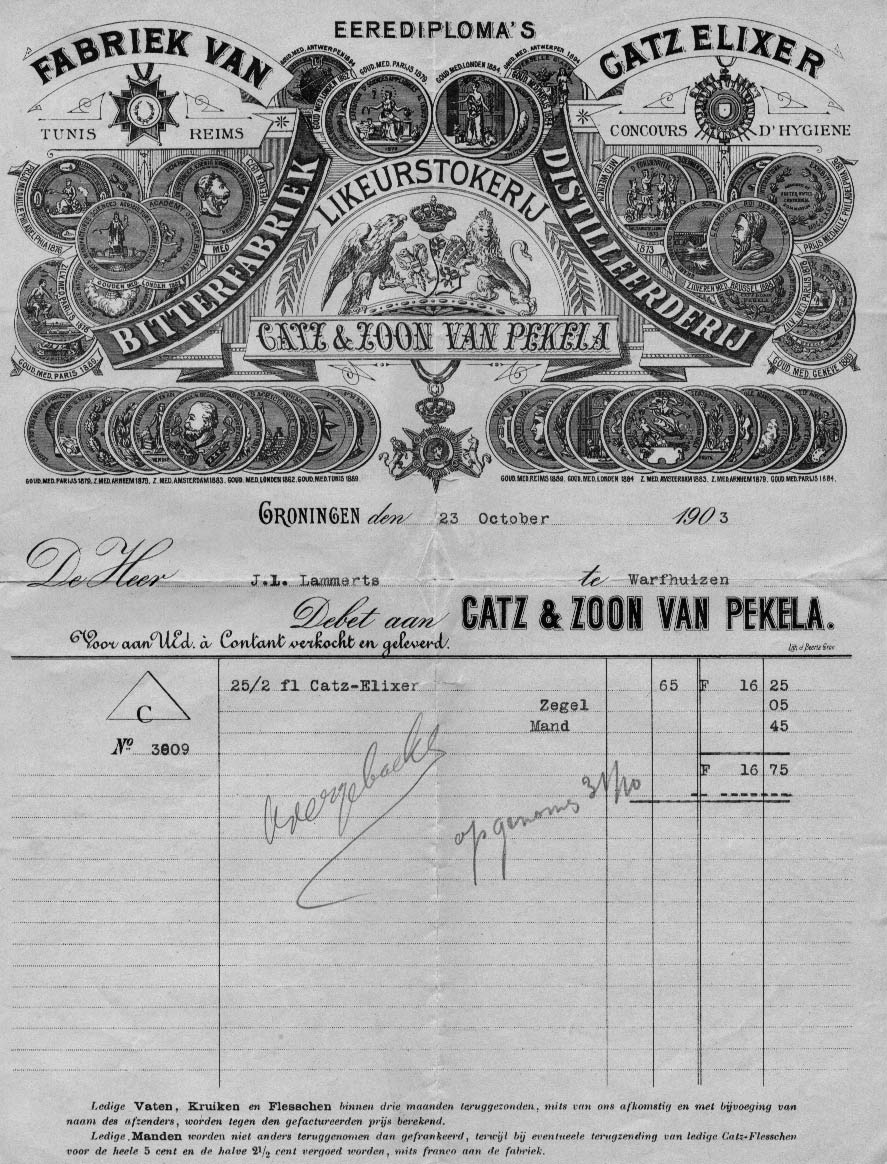 EEREDIPLOMA'S
FABRIEK VAN
CATZ ELIXER
TUNIS REIMS
CONCOURS D'HYGIENE
GOUD. MED. PARIJS 1879.
GOUD. MED. LONDEN 1884.
LIKEURSTOKERIJ
BITTERFABRIEK
DISTILLEERDERIJ
CATZ & ZOON VAN PEKELA
GOUD. MED. PARIS 1889.
GOUD. MED. GENEVE 1889.
GOUD. MED. PARIJS 1879. Z. MED. ARNHEM 1879. Z. MED. AMSTERDAM 1883. GOUD. MED. LONDEN 1862. GOUD. MED. TUNIS 1889.
GOUD. MED. REIMS 1889. GOUD. MED. LONDEN 1884 Z. MED. AMSTERDAM 1883. Z. MED. ARNHEM 1879. GOUD. MED. PARIJS 1884.
GRONINGEN den 23 October 1903
De Heer J.L. Lammerts te Warfhuizen
Debet aan CATZ & ZOON VAN PEKELA.
Voor aan UEd. à Contant verkocht en geleverd.
25/2 fl Catz-Elixer 65 F 16 25
Zegel 05
C
Mand 45
No 3809
F 16 75
opgenomen 31/10
Ledige Vaten, Kruiken en Flesschen binnen drie maanden teruggezonden, mits van ons afkomstig en met bijvoeging van
naam des afzenders, worden tegen den gefactureerden prijs berekend.
Ledige Manden worden niet anders teruggenomen dan gefrankeerd, terwijl bij eventueele terugzending van ledige Catz-Flesschen
voor de heele 5 cent en de halve 2½ cent vergoed worden, mits franco aan de fabriek.